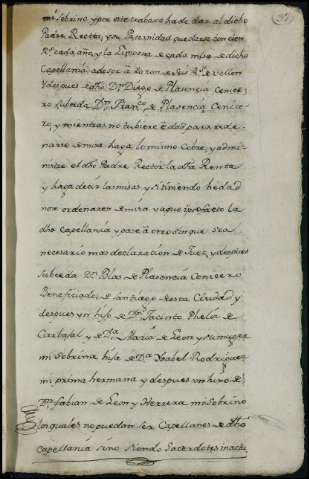 mi sobrino y por este trabaxo ha de dar al dicho
Padre Rector, y su Paternidad quedarse con cien
Rs. cada año, y la limosna de cada misa de dicho
Capellania a de ser à razon de seis Rs. de vellon
Y despues de dho Dn. Diego de Plasencia Cenice
ro subceda Dn. Fran.co de Plasencia Cenice
ro, y mientras no tubiere edad para orde
narse de misa haga lo mismo cobre, y admi
nistre el dho Padre Rector la dha Renta
y haga decir las misas, y si teniendo hedad
no se ordenare de misa vaque ipso facto la
dha Capellania y pase à otro sin que sea
necesario mas declaracion de Juez, y despues
subceda Dn. Blas de Plasencia Cenicero
Beneficiado de Santiago de esta Ciudad y
despues un hijo de Dn. Jacinto Phelis de
Carbajal y de Da. Maria de Leon y su muger
mi sobrina hija de Da. Ysabel Rodriguez
mi prima hermana y despues un hijo de
Dn. Fabian de Leon y Herrera mi sobrino
los quales no puedan ser Capellanes de dha
Capellania sino siendo Sacerdotes